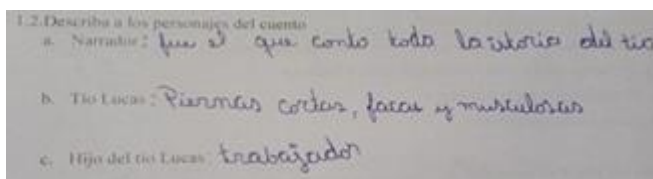 1.2.Describa a los personajes del cuento
a. Narrador: fue el que conto toda la istoria del tio
b. Tio Lucas: Piernas cortas, facas y musculosas
c. Hijo del tio Lucas: trabajador